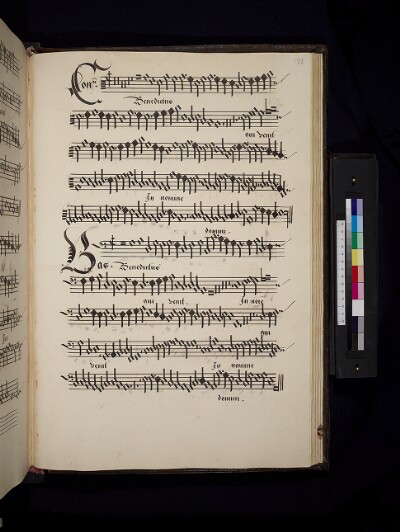 Con:
Benedictus
qui venit
In nomine
domini.
Bas. Benedictus
qui venit. In nomi
qui
venit In nomine
domini.